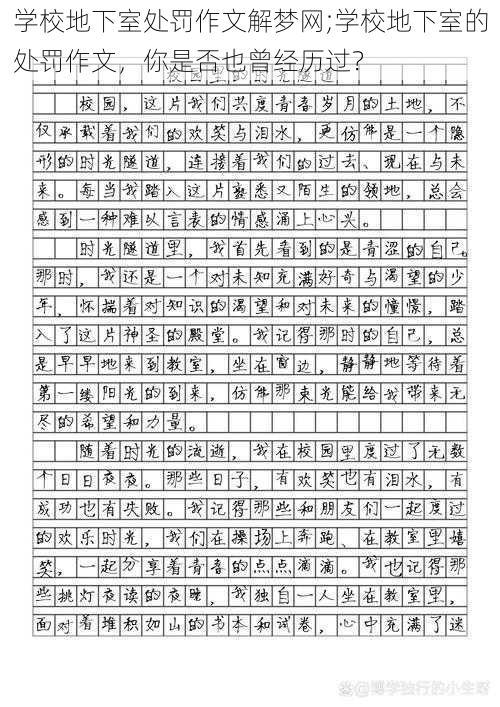 学校地下室处罚作文解梦网;学校地下室的
处罚作文，你是否也曾经历过?
校园里的时光隧道
校园，这片我们共度青春岁月的土地，不
仅承载着我们的欢笑与泪水，更仿佛是一个隐
形的时光隧道，连接着我们的过去、现在与未
来。每当我踏入这片熟悉又陌生的领地，总会
感到一种难以言表的情感涌上心头。
时光隧道里，我首先看到的是青涩的自己。
那时，我还是一个对未知充满好奇与渴望的少
年，怀揣着对知识的渴望和对未来的憧憬，踏
入了这片神圣的殿堂。我记得那时的自己，总
是早早地来到教室，坐在窗边，静静地等待着
第一缕阳光的到来，仿佛那束光能给我带来无
尽的希望和力量。
随着时光的流逝，我在校园里度过了无数
个日日夜夜。那些日子，有欢笑也有泪水，有
成功也有失败。我记得那些和朋友们一起度过
的欢乐时光，我们在操场上奔跑、在教室里嬉
笑，一起分享着青春的点点滴滴。我也记得那
些挑灯夜读的夜晚，我独自一人坐在教室里，
面对着堆积如山的书本和试卷，心中充满了迷
知乎 @博学独行的小生呀